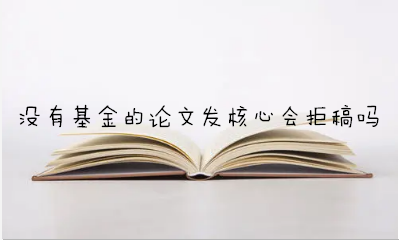 没有基金的论文发核心会拒稿吗